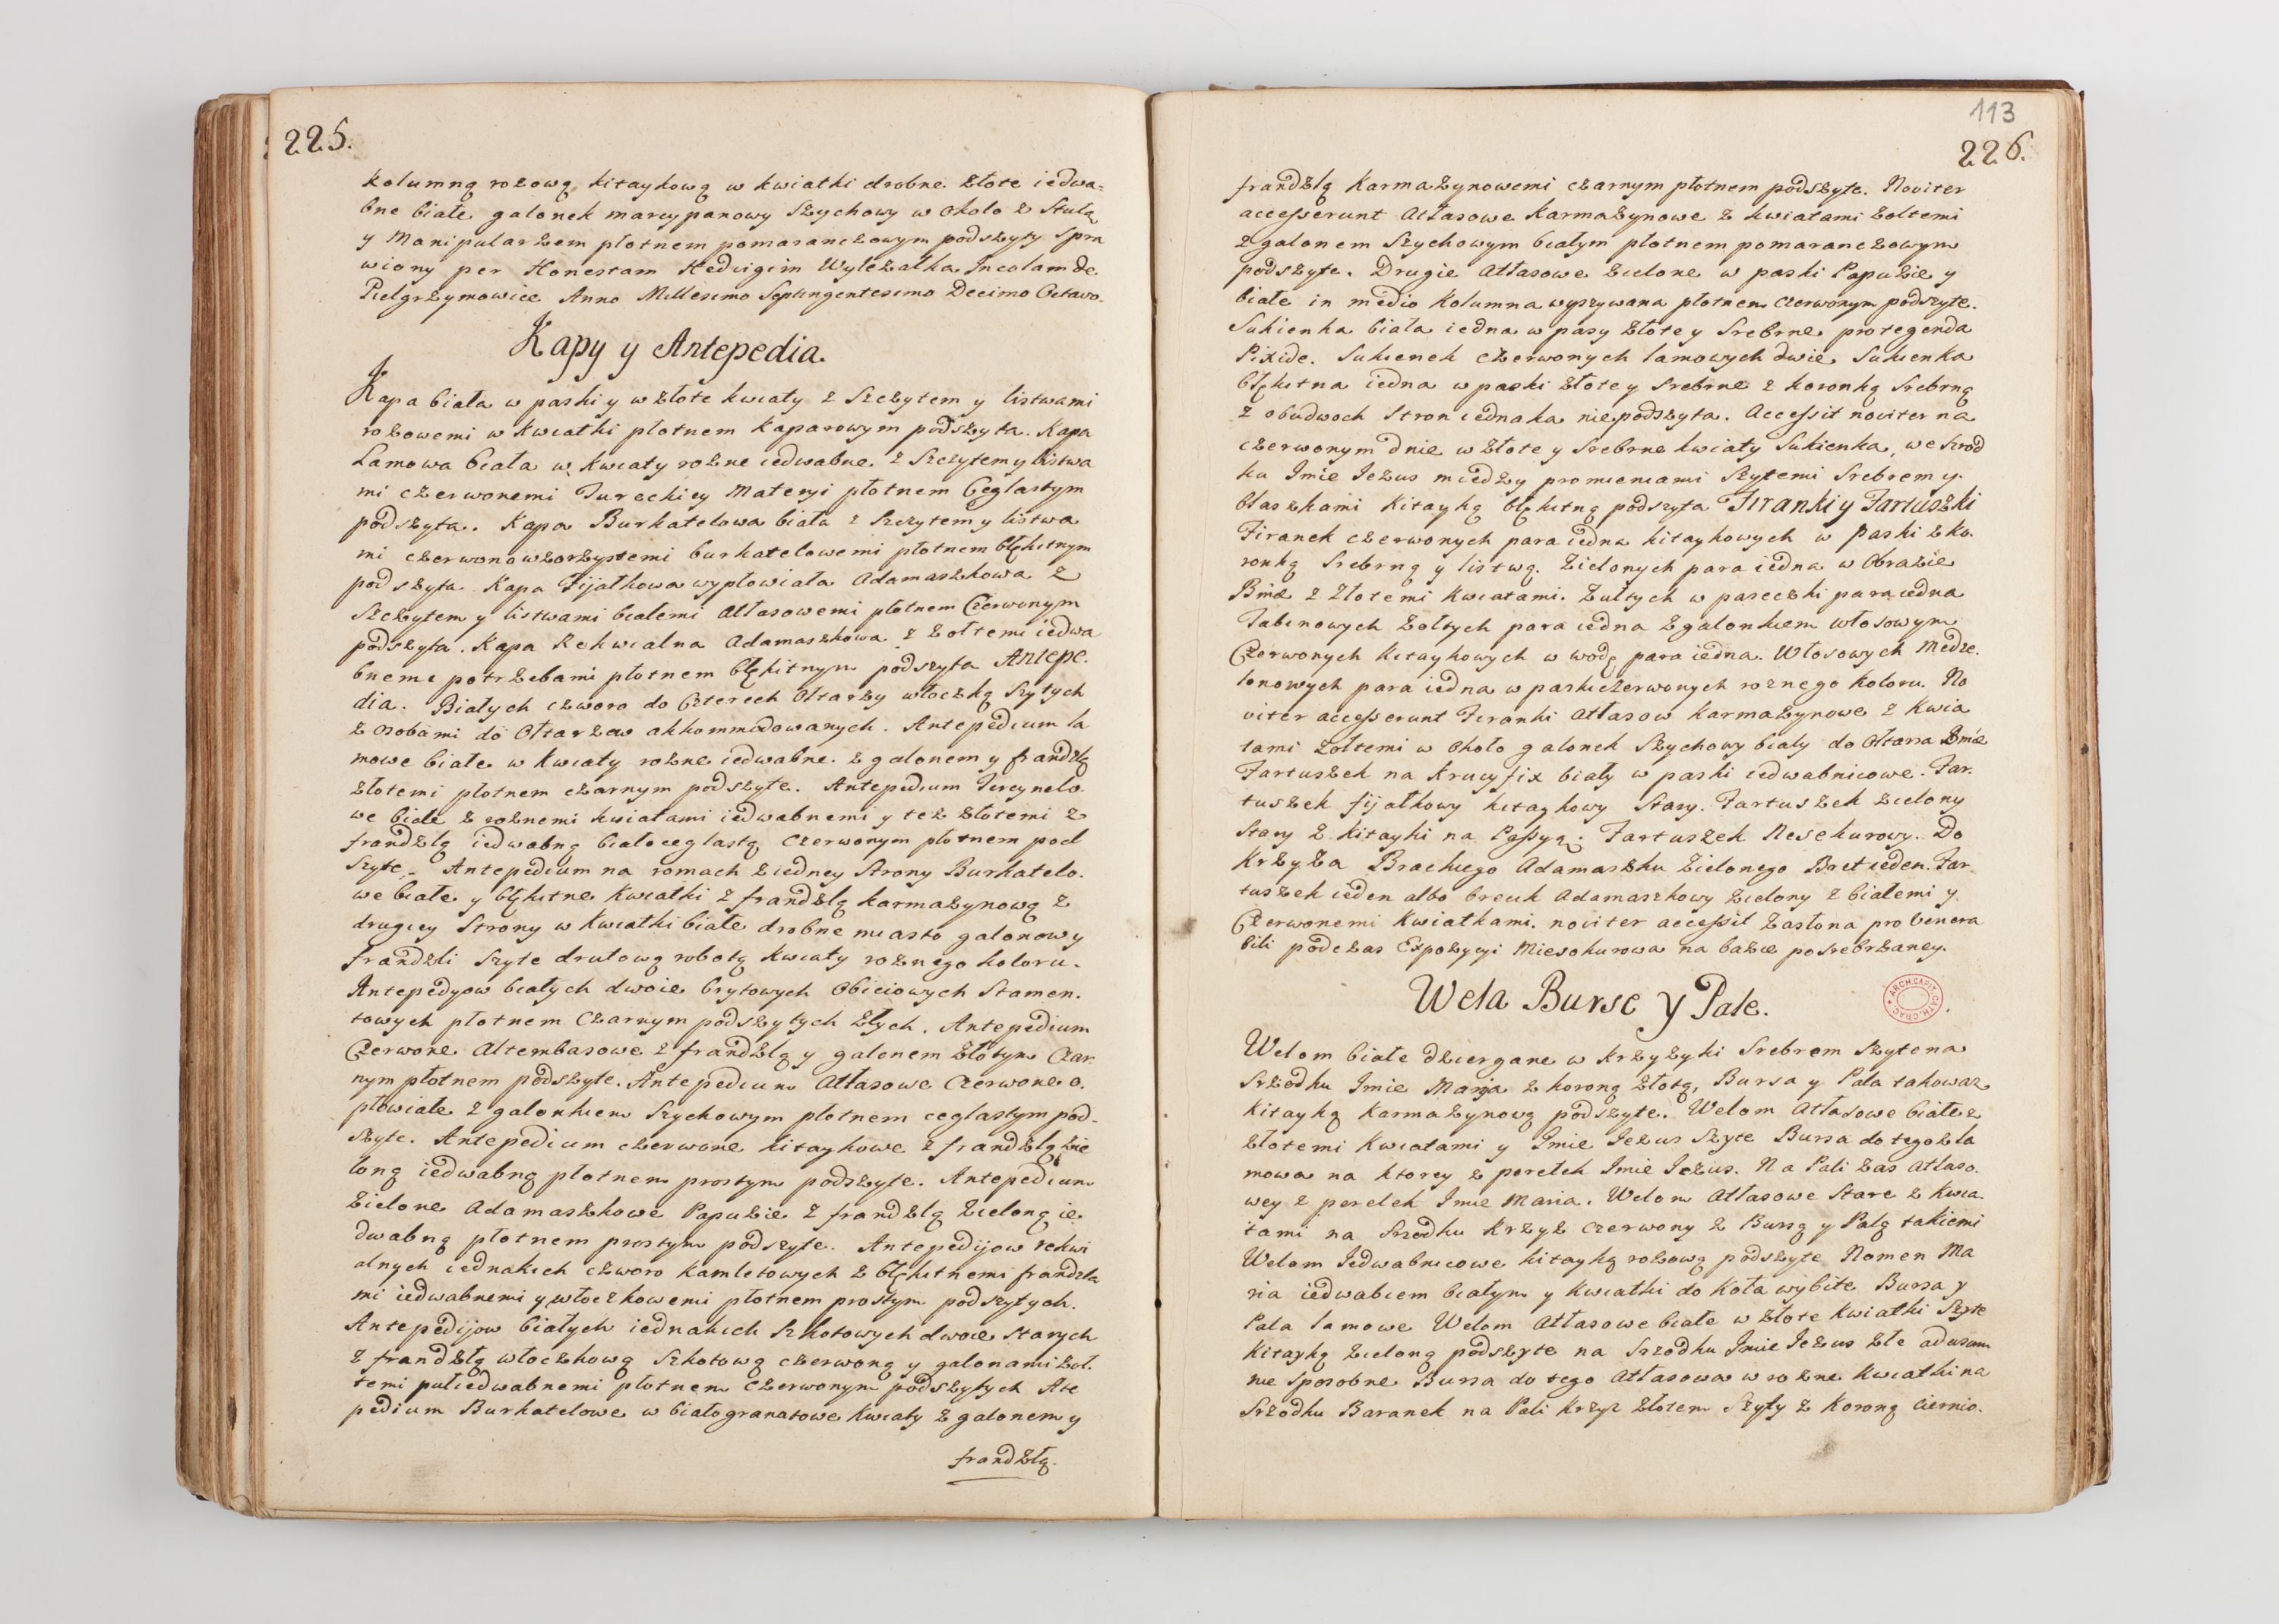 225.
kolumną rozową kitaykową w kwiatki drobne złote iedwa=
bne białe galonek marcypanowy Szychowy w okolo z Stułą
y Manipularzem płotnem pomaranczowym podszyty Spra
wiony per Honestam Hedvigim Wylezałka Incolam de
Pielgrzymowice Anno Millesimo Septingentesimo Decimo Octavo.
Kapy y Antepedia.
Kapa biała w paski y w złote kwiaty z Szczytem y listwami
rozowemi w kwiatki płotnem kaparowym podszyta. Kapa
Lamowa biała w kwiaty rozne iedwabne. z Szczytem y listwa
mi czerwonemi Tureckiey Materyi płotnem Ceglastym
podszyta. Kapa Burkatelowa biała z Szczytem y listwa
mi czerwono wzorzystemi burkatelowemi płotnem błękitnym
podszyta Kapa Fijałkowa wypłowiała Adamaszkowa z
Szczytem y listwami białemi Atłasowemi płotnem Czerwonym
podszyta. Kapa Rekwialna Adamaszkowa z zołtemi iedwa
bneme potrzebami płotnem błękitnym podszyta Antepe.
dia. Białych czworo do Czterech Ołtarzy włoczką Szytych
z osobami do Ołtarzow akkommodowanych. Antepedium la
mowe białe w kwiaty rozne iedwabne. z galonem y frandzlą
złotemi płotnem czarnym podszyte. Antepedium Tercynelo.
we białe z roznemi kwiatami iedwabnemi y tez złotemi z
frandzlą iedwabną białoceglastą Czerwonym płotnem pod
Szyte. Antepedium na romach z iedney Strony Burkatelo.
we białe y błękitne kwiatki z frandzlą karmazynową z
drugiey Strony w kwiatki białe drobne miasto galonow y
frandzli Szyte drutową robotą kwiaty roznego koloru.
Antepedyow białych dwoie brytowych Obiciowych Stamen.
towych płotnem Czarnym podszytych złych. Antepedium
Czerwone Altembasowe z frandzlą y galonem złotym Czar
nym płotnem podszyte. Antepedium Atłasowe Czerwone o.
płowiałe z galonkiem Szychowym płotnem ceglastym pod.
szyte. Antepedium czerwone kitaykowe z frandzlą zie
loną iedwabną płotnem prostym podszyte. Antepedium
Zielone Adamaszkowe Papuzie z frandzlą zieloną ie
dwabną płotnem prostym podszyte. Antepedijow rekwi
alnych iednakich czworo kamletowych z błękitnemi frandzla
mi iedwabnemi y włoczkowemi płotnem prostym podszytych.
Antepedijow białych iednakich Szkotowych dwoie starych
z frandzlą włoczkową Szkotową czerwoną y galonami zoł.
temi pułiedwabnemi płotnem czerwonym podszytych Ate
pedium Burkatelowe w białogranatowe kwiaty z galonem y
frandzlą.
113
226.
frandzlą Karmazynowemi czarnym płotnem podszyte. Noviter
accesserunt Atłasowe Karmazynowe z kwiatami zoltemi
z galonem Szychowym białym płotnem pomaranczowym
podszyte. Drugie Atłasowe zielone w paski Papuzie y
białe in medio Kolumna wyszywana płotnem Czerwonym podszyte.
Sukienka biała iedna w pasy złote y Srebrne protegenda
Pixide. Sukienek czerwonych lamowych dwie Sukienka
błękitna iedna w paski złote y Srebrne z koronką Srebrną
z obudwoch Stron iednaka niepodszyta. Accessit noviter na
czerwonym dnie w złote y Srebrne kwiaty Sukienka, we Srod
ku Imie Jezus miedzy promieniami Szytemi Srebrem y.
blaszkami kitayką błękitną podszyta Firanki y Fartuszki
Firanek czerwonych para iedna kitaykowych w paski z ko.
ronką Srebrną y listwą. Zielonych para iedna w Obrazie
Bmæ z złotemi kwiatami. Zułtych w paseczki para iedna
Tabinowych zołtych para iedna z galonkiem włosowym
Czerwonych kitaykowych w wodę para iedna. Włosowych Medze.
lonowych para iedna w paski czerwonych roznego koloru. No
viter accesserunt Firanki Atłasow karmazynowe z kwia
tami zołtemi w około galonek Szychowy biały do Ołtarza Bmæ
Fartuszek na Krucyfix biały w paski iedwabnicowe. Far.
tuszek fijałkowy kitaykowy Stary. Fartuszek zielony
Stary z kitayki na Passyą. Fartuszek Nesekurowy. Do
Krzyza Brackiego Adamaszku zielonego Bret ieden. Far
tuszek ieden albo breuk Adamaszkowy zielony z białemi y
Czerwonemi kwiatkami. noviter accessit zasłona pro Venera
bili podczas Expozycyi Miesokurowa na bazie posrebrzaney.
Wela Burse y Pale.
ARCH. CAPIT. CATH. CRAC.
Welom białe dziergane w krzyzyki Srebrem Szyte na
Srzodku Imie Marya z koroną złotą, Bursa y Pala takowaz
kitayką karmazynową podszyte. Welom Atłasowe białe z
złotemi kwiatami y Imie Jezus Szyte Bursa do tego z la
mowa na ktorey z perełek Imie Jezus. Na Pali zas Atłaso.
wey z perelek Imie Maria. Welom Atłasowe Stare z kwia.
tami na Srzodku krzyz czerwony z Bursą y Palą takiemi
Welom Jedwabnicowe kitayką rozową podszyte Nomen Ma
ria iedwabiem białym y kwiatki do koła wybite Bursa y
Pala lamowe Welom Atłasowe białe w złote kwiatki Szyte
kitayką zieloną podszyte na Srzodku Imie Jezus złe ad usum
nie sposobne Bursa do tego Atłasowa w rozne kwiatki na
Srzodku Baranek na Pali krzyz złotem Szyty z koroną Ciernio.